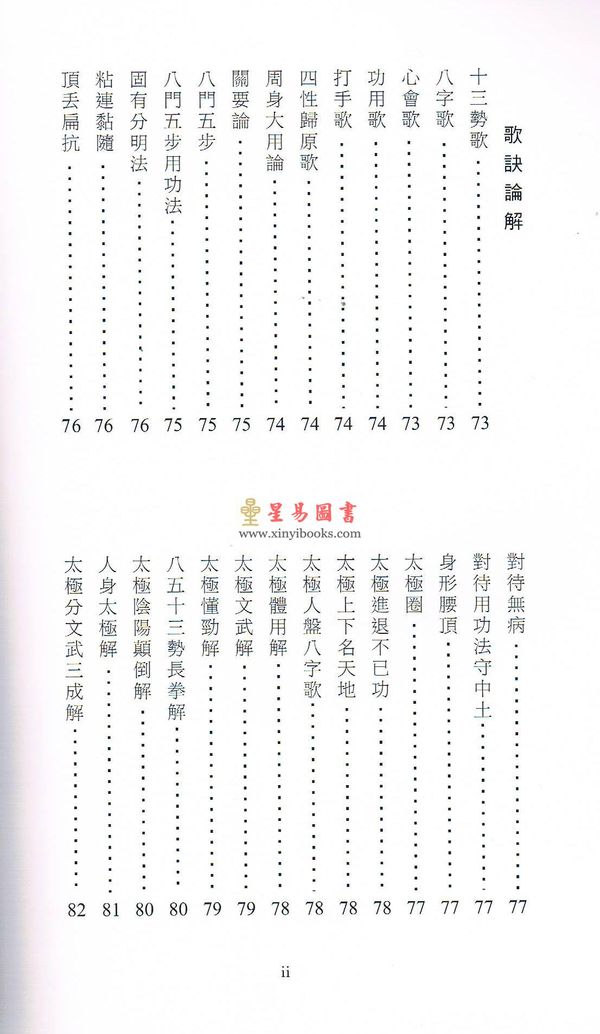 歌訣論解
十三勢歌 73
八字歌 73
心會歌 73
功用歌 74
打手歌 74
四性歸原歌 74
周身大用論 74
關要論 75
八門五步 75
八門五步用功法 75
固有分明法 76
粘連黏隨 76
頂丟扁抗 76
星易圖書
www.xinyibooks.com
對待無病 77
對待用功法守中土 77
身形腰頂 77
太極圈 77
太極進退不已功 78
太極上下名天地 78
太極人盤八字歌 78
太極體用解 78
太極文武解 79
太極懂勁解 79
八五十三勢長拳解 80
太極陰陽顛倒解 80
人身太極解 81
太極分文武三成解 82
ii